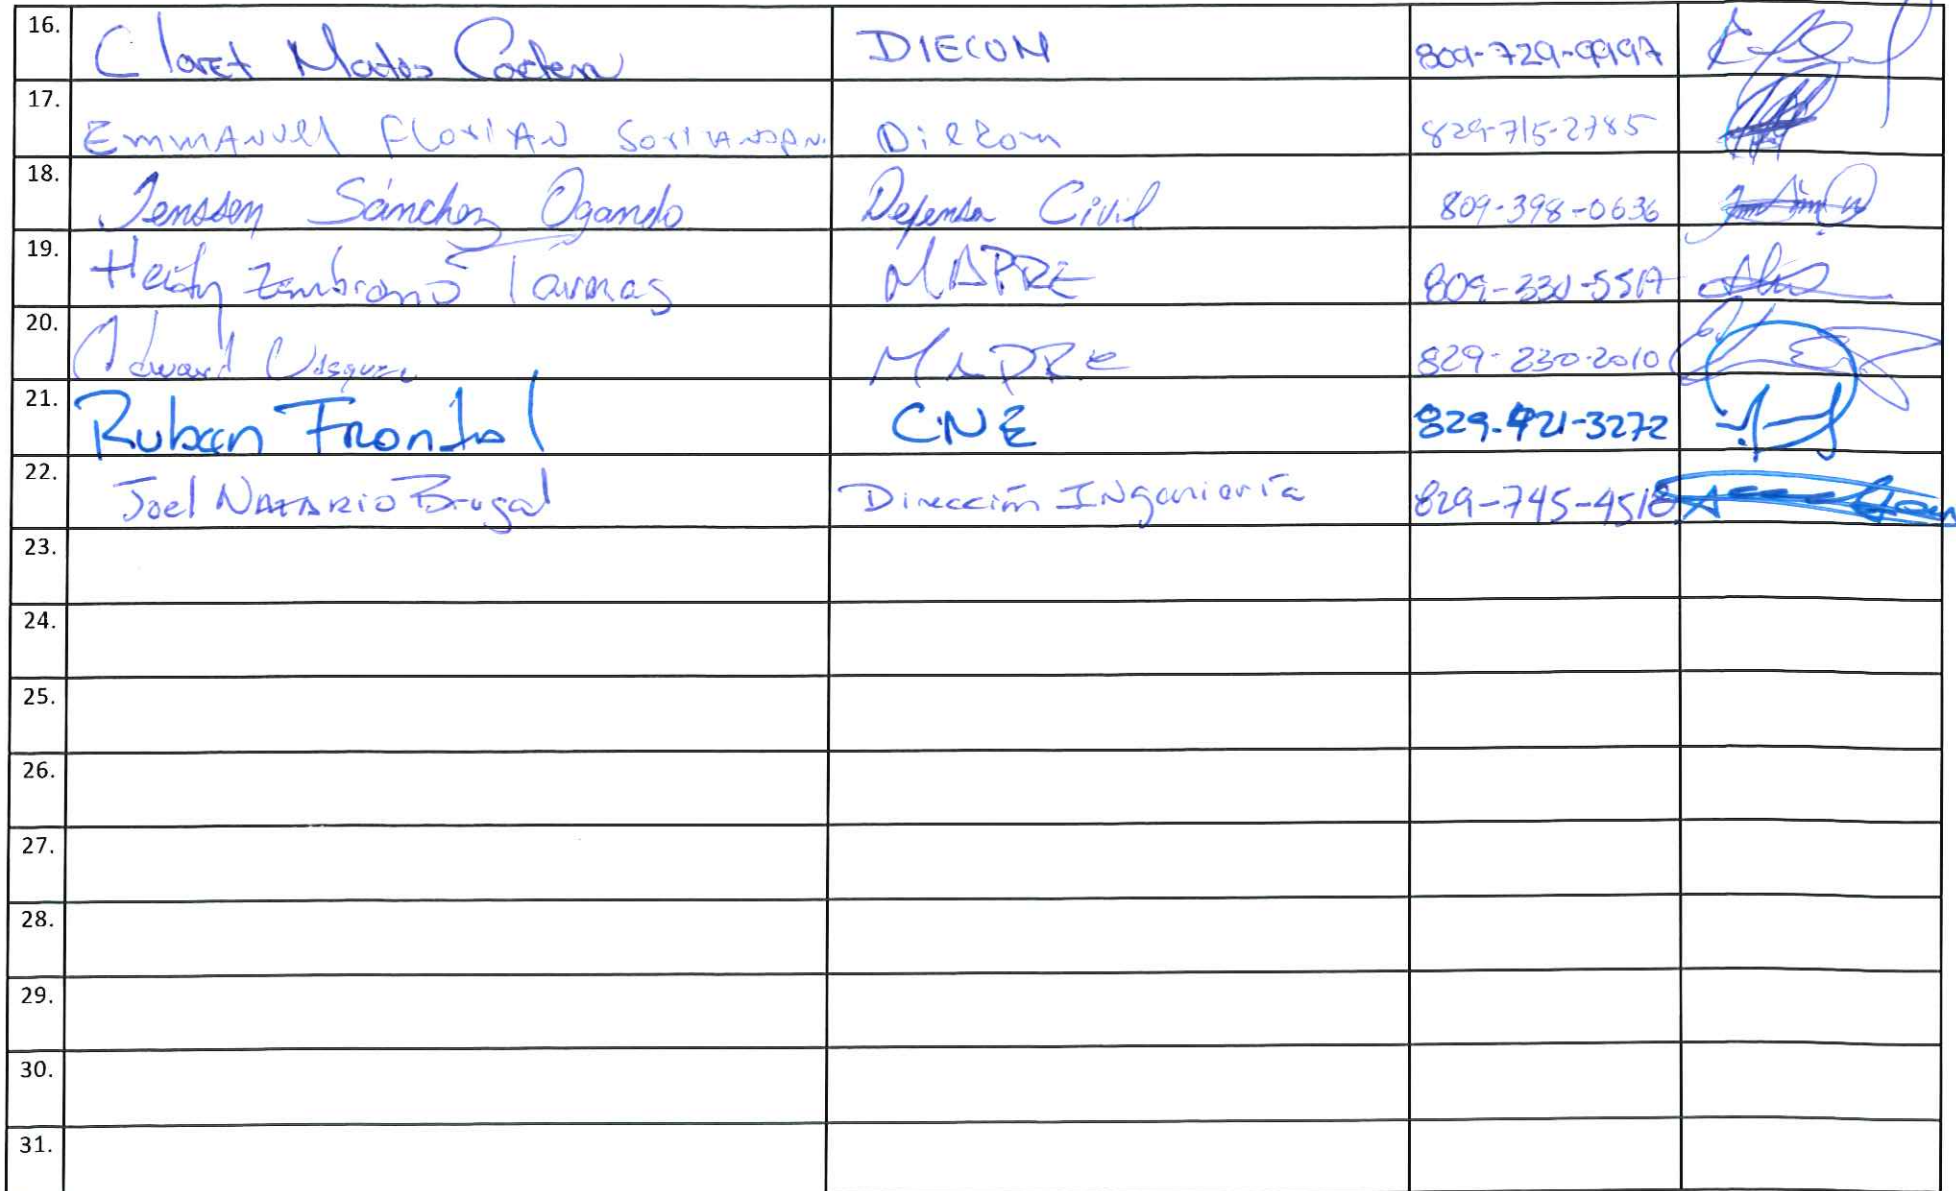 16. Claret Matos DIECOM 809-729-9997
17. EmmANuel FloriAN Diecom 829-715-2785
18. Jenssen Sánchez Ogando Defensa Civil 809-398-0636
19. Zambrano MAPRE
20. Edward Vásquez MAPRE 829-230-2010
21. Ruben Frontal CNE 829-421-3272
22. Joel NAZARIO Brugal Dirección INgeniería 829-745-4518
23.
24.
25.
26.
27.
28.
29.
30.
31.